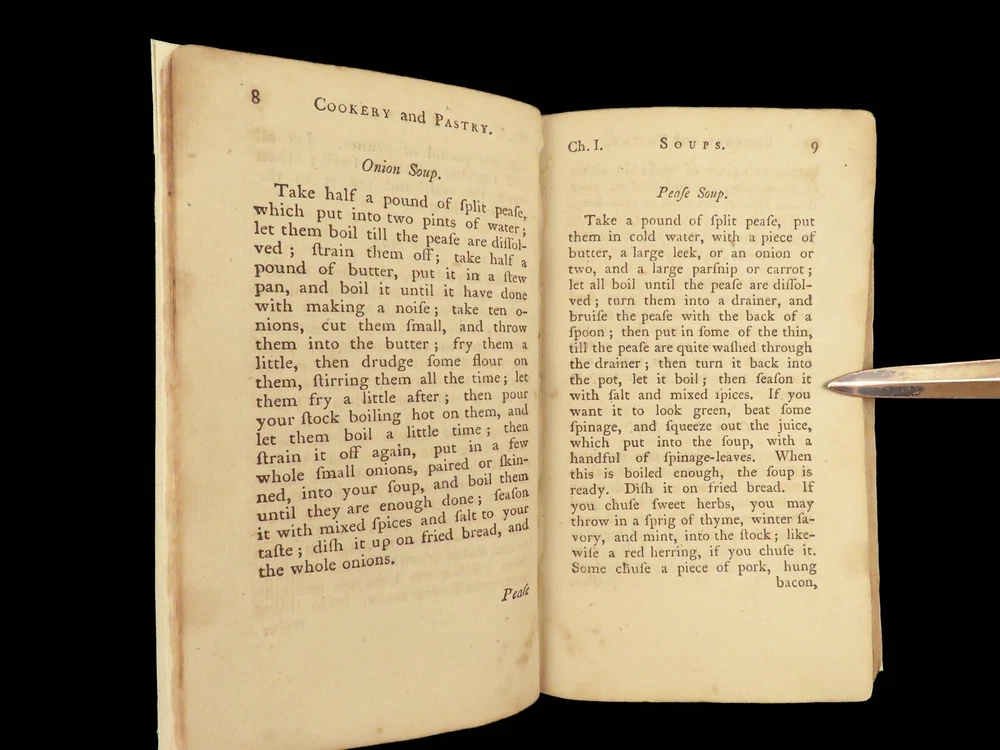 8
COOKERY and PASTRY.
Onion Soup.
Take half a pound of ſplit peaſe,
which put into two pints of water;
let them boil till the peaſe are diſſol-
ved; ſtrain them off; take half a
pound of butter, put it in a ſtew
pan, and boil it until it have done
with making a noiſe; take ten o-
nions, cut them ſmall, and throw
them into the butter; fry them a
little, then drudge ſome flour on
them, ſtirring them all the time; let
them fry a little after; then pour
your ſtock boiling hot on them, and
let them boil a little time; then
ſtrain it off again, put in a few
whole ſmall onions, paired or ſkin-
ned, into your ſoup, and boil them
until they are enough done; ſeaſon
it with mixed ſpices and ſalt to your
taſte; diſh it up on fried bread, and
the whole onions.
Peaſe
Ch. I.
SOUPS.
9
Peaſe Soup.
Take a pound of ſplit peaſe, put
them in cold water, with a piece of
butter, a large leek, or an onion or
two, and a large parſnip or carrot;
let all boil until the peaſe are diſſol-
ved; turn them into a drainer, and
bruiſe the peaſe with the back of a
ſpoon; then put in ſome of the thin,
till the peaſe are quite waſhed through
the drainer; then turn it back into
the pot, let it boil; then ſeaſon it
with ſalt and mixed ſpices. If you
want it to look green, beat ſome
ſpinage, and ſqueeze out the juice,
which put into the ſoup, with a
handful of ſpinage-leaves. When
this is boiled enough, the ſoup is
ready. Diſh it on fried bread. If
you chuſe ſweet herbs, you may
throw in a ſprig of thyme, winter ſa-
vory, and mint, into the ſtock; like-
wiſe a red herring, if you chuſe it.
Some chuſe a piece of pork, hung
bacon,